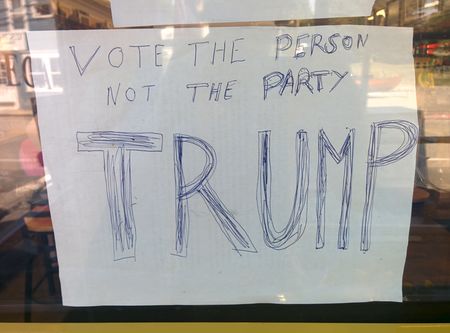 VOTE THE PERSON
NOT THE PARTY
TRUMP